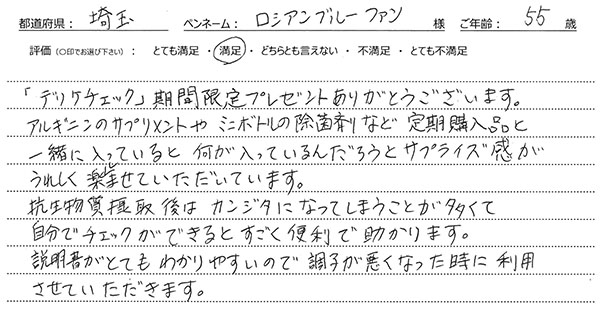 都道府県: 埼玉 ペンネーム: ロシアンブルーファン 様 ご年齢: 55 歳
評価(○印でお選び下さい): とても満足・満足・どちらとも言えない・不満足・とても不満足
「デリケチェック」期間限定プレゼントありがとうございます。
アルギニンのサプリメントやミニボトルの除菌剤など定期購入品と
一緒に入っていると何が入っているんだろうとサプライズ感が
うれしく楽ませていただいています。
抗生物質摂取後はカンジタになってしまうことが多くて
自分でチェックができるとすごく便利で助かります。
説明書がとてもわかりやすいので調子が悪くなった時に利用
させていただきます。